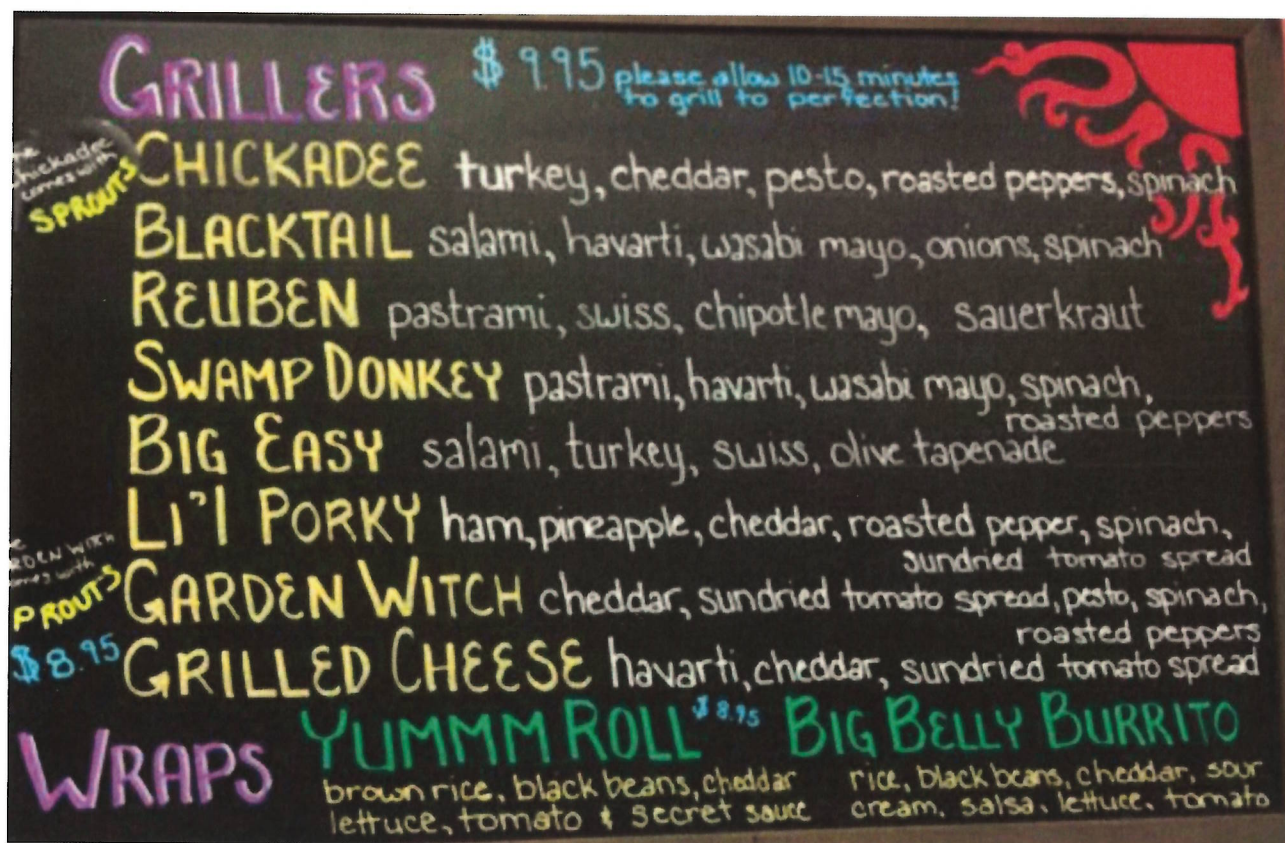 GRILLERS $9.95 please allow 10-15 minutes
to grill to perfection!
chickadee
comes with
SPROUTS
CHICKADEE turkey, cheddar, pesto, roasted peppers, spinach
BLACKTAIL salami, havarti, wasabi mayo, onions, spinach
REUBEN pastrami, swiss, chipotle mayo, sauerkraut
SWAMP DONKEY pastrami, havarti, wasabi mayo, spinach,
roasted peppers
BIG EASY salami, turkey, swiss, olive tapenade
LI'l PORKY ham, pineapple, cheddar, roasted pepper, spinach,
sundried tomato spread
WITCH
with
PROUTS
GARDEN WITCH cheddar, sundried tomato spread, pesto, spinach,
roasted peppers
$8.95 GRILLED CHEESE havarti, cheddar, sundried tomato spread
WRAPS YUMMM ROLL $8.95 BIG BELLY BURRITO
brown rice, black beans, cheddar
lettuce, tomato & secret sauce
rice, black beans, cheddar, sour
cream, salsa, lettuce, tomato